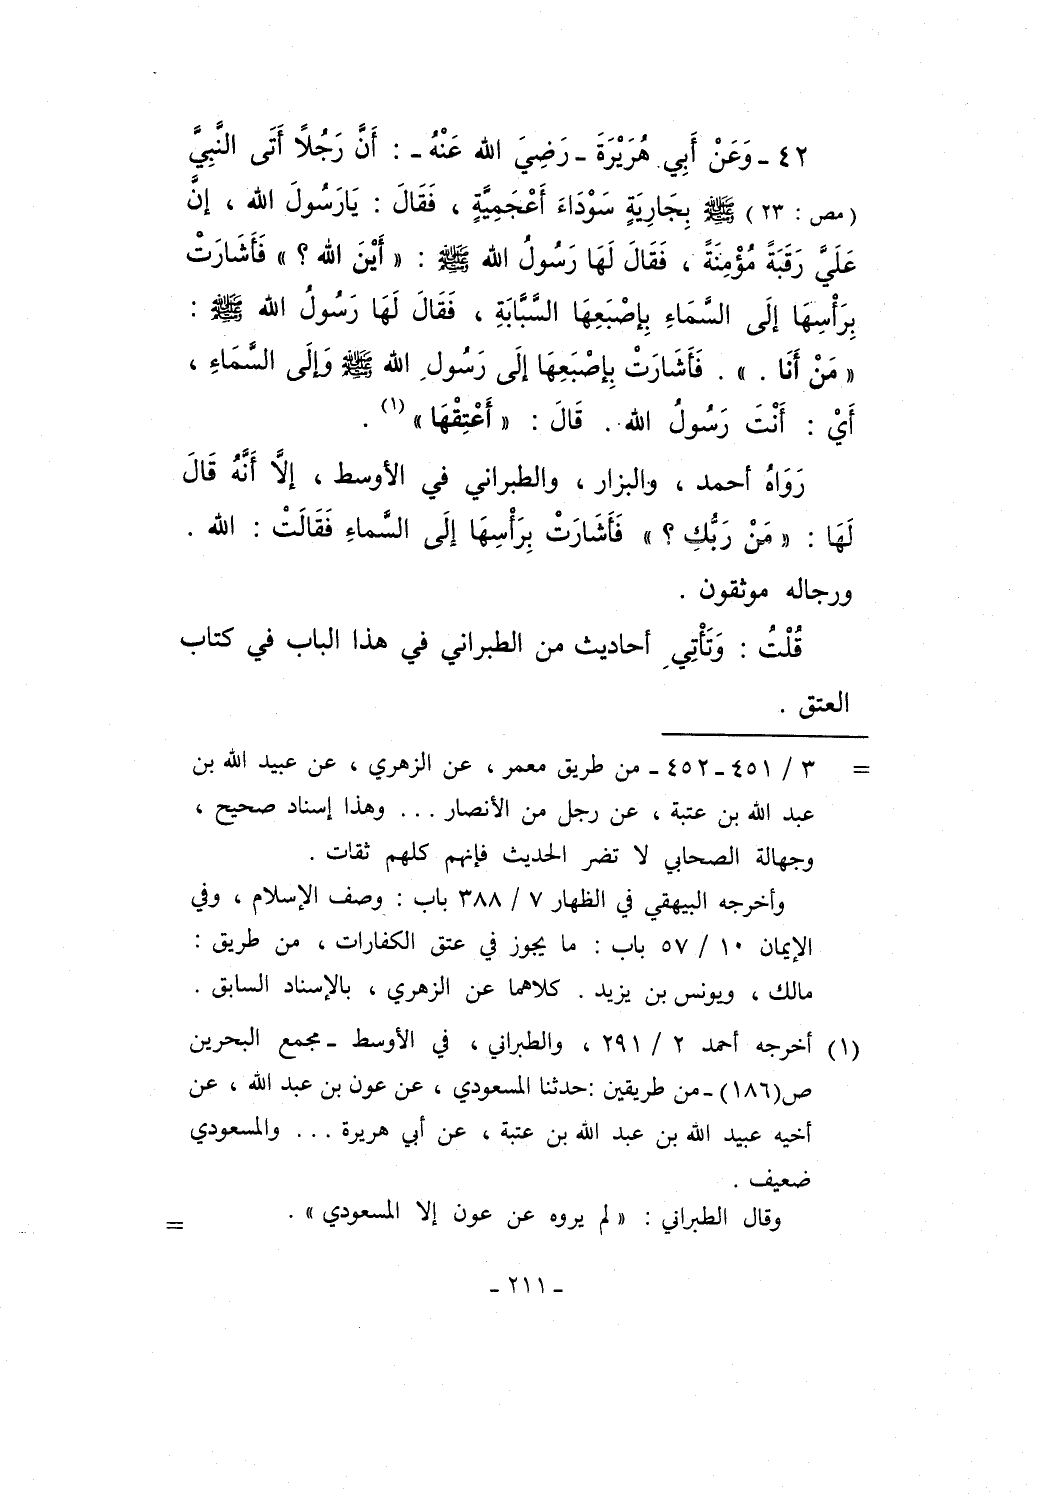 ٤٢ - وَعَنْ أَبِي هُرَيْرَةَ - رَضِيَ الله عَنْهُ - : أَنَّ رَجُلاً أَتَى النَّبِيَّ
(مص : ٢٣) ﷺ بِجَارِيَةٍ سَوْدَاءَ أَعْجَمِيَّةٍ ، فَقَالَ : يَارَسُولَ الله ، إنَّ
عَلَيَّ رَقَبَةً مُؤْمِنَةً ، فَقَالَ لَهَا رَسُولُ الله ﷺ : « أَيْنَ الله ؟ » فَأَشَارَتْ
بِرَأْسِهَا إلَى السَّمَاءِ بِإصْبَعِهَا السَّبَّابَةِ ، فَقَالَ لَهَا رَسُولُ الله ﷺ :
« مَنْ أَنَا . » . فَأَشَارَتْ بِإصْبَعِهَا إلَى رَسُولِ الله ﷺ وَإلَى السَّمَاءِ ،
أَيْ : أَنْتَ رَسُولُ الله . قَالَ : « أَعْتِقْهَا » (١) .
رَوَاهُ أحمد ، والبزار ، والطبراني في الأوسط ، إلَّا أَنَّهُ قَالَ
لَهَا : « مَنْ رَبُّكِ ؟ » فَأَشَارَتْ بِرَأْسِهَا إلَى السَّماءِ فَقَالَتْ : الله .
ورجاله موثقون .
قُلْتُ : وَتَأْتِي أحاديث من الطبراني في هذا الباب في كتاب
العتق .
= ٣ / ٤٥١ - ٤٥٢ - من طريق معمر ، عن الزهري ، عن عبيد الله بن
عبد الله بن عتبة ، عن رجل من الأنصار ... وهذا إسناد صحيح ،
وجهالة الصحابي لا تضر الحديث فإنهم كلهم ثقات .
وأخرجه البيهقي في الظهار ٧ / ٣٨٨ باب : وصف الإسلام ، وفي
الإيمان ١٠ / ٥٧ باب : ما يجوز في عتق الكفارات ، من طريق :
مالك ، ويونس بن يزيد . كلاهما عن الزهري ، بالإسناد السابق .
(١) أخرجه أحمد ٢ / ٢٩١ ، والطبراني ، في الأوسط - مجمع البحرين
ص(١٨٦) - من طريقين :حدثنا المسعودي ، عن عون بن عبد الله ، عن
أخيه عبيد الله بن عبد الله بن عتبة ، عن أبي هريرة ... والمسعودي
ضعيف .
وقال الطبراني : « لم يروه عن عون إلا المسعودي » . =
- ٢١١ -